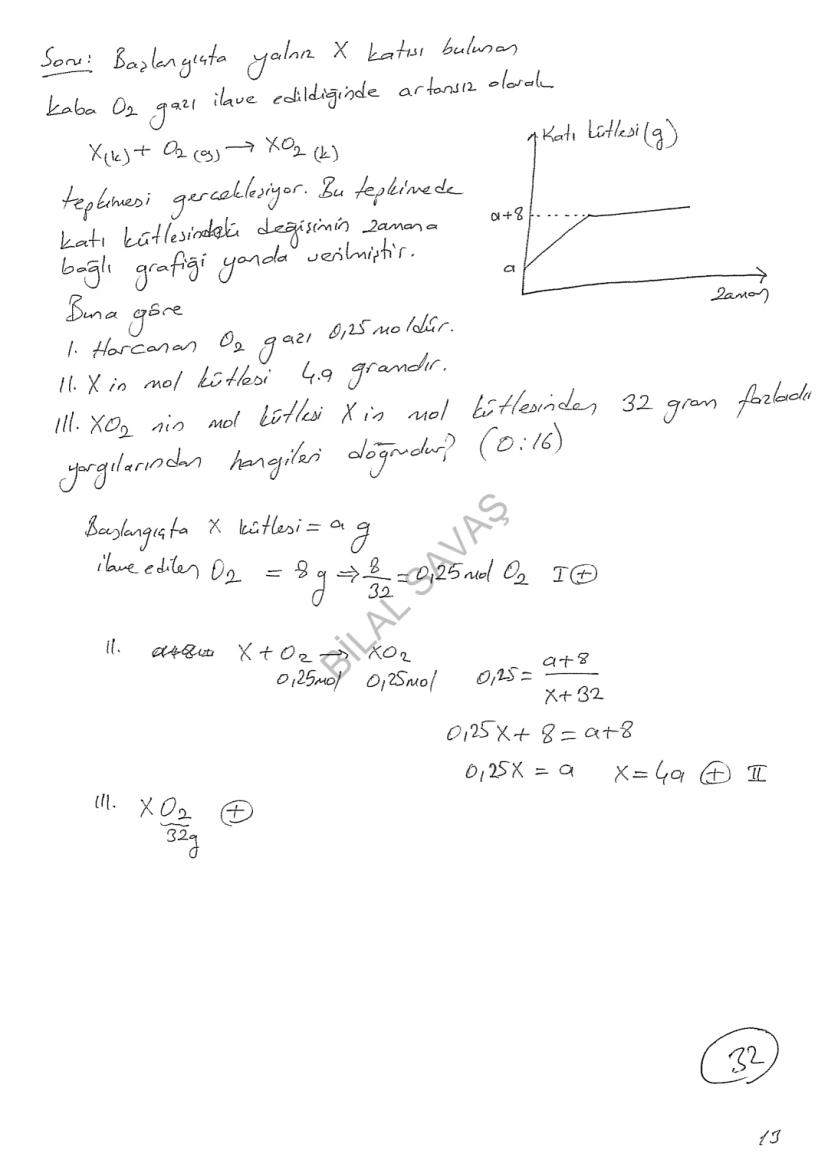 Soru: Başlangıçta yalnız X katısı bulunan
kaba O2 gazı ilave edildiğinde artansız olarak
X(k) + O2 (g) → XO2 (k)
tepkimesi gerçekleşiyor. Bu tepkimede
katı kütlesindeki değişimin zamana
bağlı grafiği yanda verilmiştir.
Katı kütlesi (g)
a+8
a
zaman
Buna göre
I. Harcanan O2 gazı 0,25 moldür.
II. X in mol kütlesi 4.a gramdır.
III. XO2 nin mol kütlesi X in mol kütlesinden 32 gram fazladır
yargılarından hangileri doğrudur? (O:16)
Başlangıçta X kütlesi = a g
ilave edilen O2 = 8 g ⇒ 8/32 = 0,25 mol O2 I (+)
II. X + O2 → XO2
0,25mol 0,25mol
0,25 = a+8 / X+32
0,25X + 8 = a+8
0,25X = a X = 4a (+) II
III. XO2 (+)
32g
BİLAL SAVAŞ
32
13